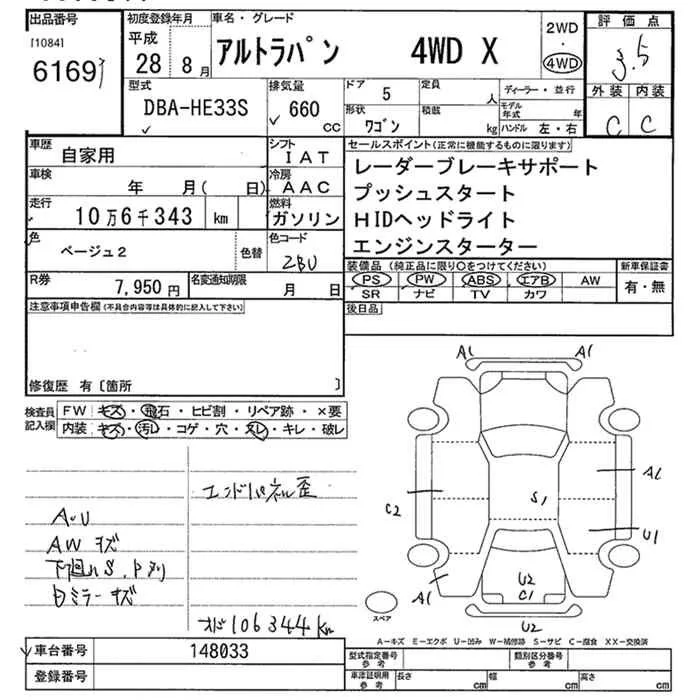 出品番号 初度登録年月 車名・グレード 2WD ・ 4WD 評価点
[1084] 平成 アルトラパン 4WD X 3.5
6169 28 8月
型式 排気量 ドア 5 定員 人 ディーラー・並行 外装 内装
DBA-HE33S 660 CC 形状 ワゴン 積載 kg モデル年式 年 C C
ハンドル 左・右
車歴 自家用 シフト IAT セールスポイント(正常に機能するものに限ります)
車検 年 月( 日) 冷房 AAC レーダーブレーキサポート
走行 10万6千343 km 燃料 ガソリン プッシュスタート
色 ベージュ2 色替 色コード ZBU HIDヘッドライト
エンジンスターター
R券 7,950円 名変通知期限 月 日 装備品(純正品に限り○をつけてください) 新車保証書
PS PW ABS エアB AW 有・無
SR ナビ TV カワ
注意事項申告欄(不具合内容等は具体的に記入して下さい) 後日品
修復歴 有〔箇所 〕
検査員記入欄 FW キズ・飛石・ヒビ割・リペア跡・×要
内装 キズ・汚レ・コゲ・穴・スレ・キレ・破レ
A1 A1
エンドパネル歪
A1
C2 S1
A・U U1
AW キズ
下廻りS.
U2
C1
A1
ミラーキズ
スペア
オド106344km U2
A―キズ E―エクボ U―凹み W―補修跡 S―サビ C―腐食 XX―交換済
車台番号 148033 型式指定番号 参考 類別区分番号 参考
登録番号 車庫証明用 参考 長さ cm 幅 cm 高さ cm